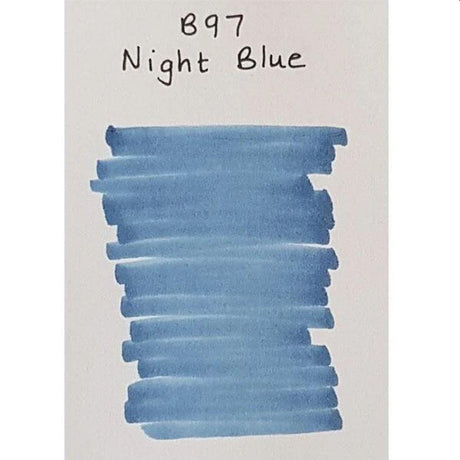 B97
Night Blue